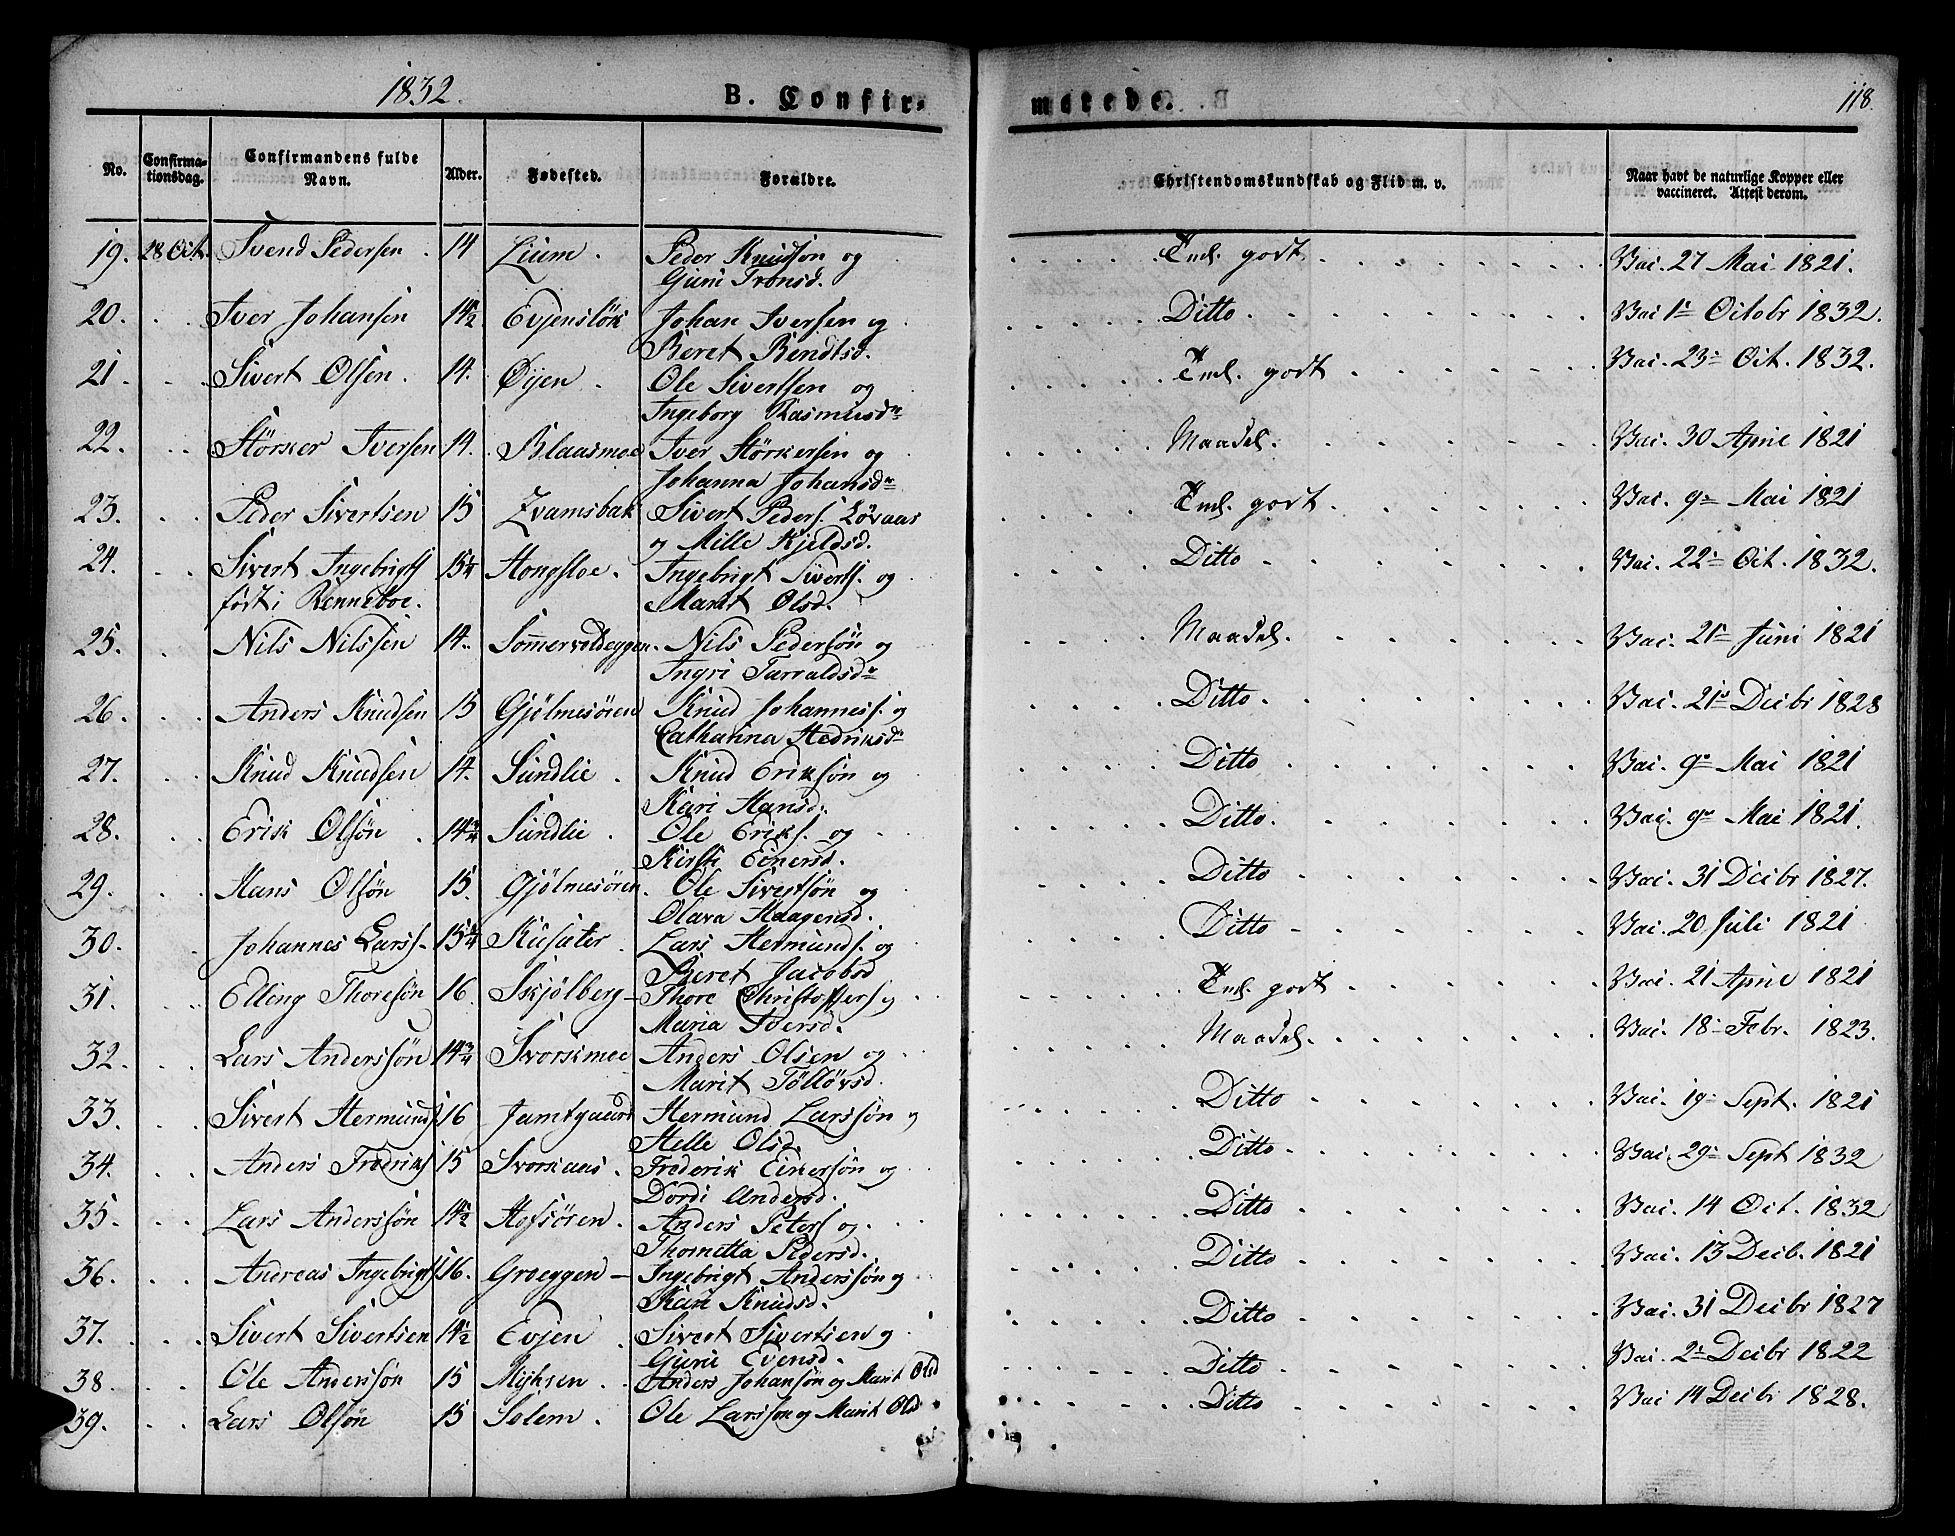 1832. B. Confir- marede. 118.
No. Confirma-tionsdag. Confirmandens fulde Navn. Alder. Fødested. Forældre. Christendomskundskab og Flid m. v. Naar havt de naturlige Kopper eller vaccineret. Attest derom.
19. 28 Oct. Svend Pedersen 14 Lium. Peder Knudsøn og Guri Tronsd. Eml. godt Vac. 27 Mai 1821.
20. Iver Johansen 14 1/2 Evjensløk Johan Iversen og Beret Bendtsd. Ditto Vac. 1ste Octobr 1832.
21. Sivert Olsen 14. Øijen Ole Sivertsen og Ingeborg Rasmusdr Eml. godt Vac. 23 Oct. 1832.
22. Størker Iversen 14. Blaasmoe Iver Størkersen og Johanna Johansdr Maadel. Vac. 30 April 1821
23. Peder Sivertsen 15 Qvamsbak Sivert Peders. Løvaas og Mille Kjeldsd. Eml. godt Vac. 9de Mai 1821
24. Sivert Ingebrigts født i Renneboe. 15 1/4 Hongsloe. Ingebrigt Siverts. og Marit Olsd. Ditto Vac. 22 Oct. 1832.
25. Nils Nilssen 14. Sommervoldeggen. Nils Pedersøn og Ingri Tarraldsdr Maadel. Vac. 21 Juni 1821
26. Anders Knudsen 15 Gjølmesøren Knud Johanness. og Catharina Hedriksdr Ditto Vac. 21 Decbr 1828
27. Knud Knudsen 14. Sundlie Knud Eriksøn og Kari Hansd. Ditto Vac. 9de Mai 1821
28. Erik Olsøn 14 3/4 Sundlie. Ole Eriks. og Kirsti Einersd. Ditto. Vac. 9de Mai 1821.
29. Hans Olsøn 15. Gjølmesøren Ole Sivertsøn og Olava Haagensd. Ditto Vac. 31 Decbr 1827.
30. Johannes Larss. 15 1/4 Kusæter Lars Hermunds. og Beret Jacobsd Ditto Vac. 20 Juli 1821
31. Elling Thoresøn 16. Skjølberg Thore Christoffers og Maria Iversd. Eml. godt Vac. 21 April 1821
32. Lars Anderssøn 14 3/4 Svorkmoe Anders Olsen og Marit Tølløvsd. Maadel. Vac. 18 Febr. 1823.
33. Sivert Hermunds 16 Jamtgaard Hermund Larssøn og Helle Olsd. Ditto Vac. 19 Sept. 1821
34. Anders Frederiks 15 Svorkaas. Frederik Einersøn og Dordi Andersd. Ditto Vac. 29 Sept 1832
35. Lars Anderssøn 14 1/2 Hofsøren Anders Peters og Thornetta Pedersd. Ditto Vac. 14 Oct. 1832
36. Andreas Ingebrigts 16. Groeggen Ingebrigt Anderssøn og Kari Knudsd. Ditto Vac. 13 Decb. 1821
37. Sivert Sivertsen 14 1/2 Evjen Sivert Sivertsen og Guri Evensd. Ditto Vac. 31 Decbr 1827
38. Ole Anderssøn 15 Myhren Anders Johansøn og Marit Olsd Ditto Vac. 2 Decbr 1822
39. Lars Olsøn 15 Solem. Ole Larssøn og Marit Olsd Ditto Vac 14 Decbr 1828.